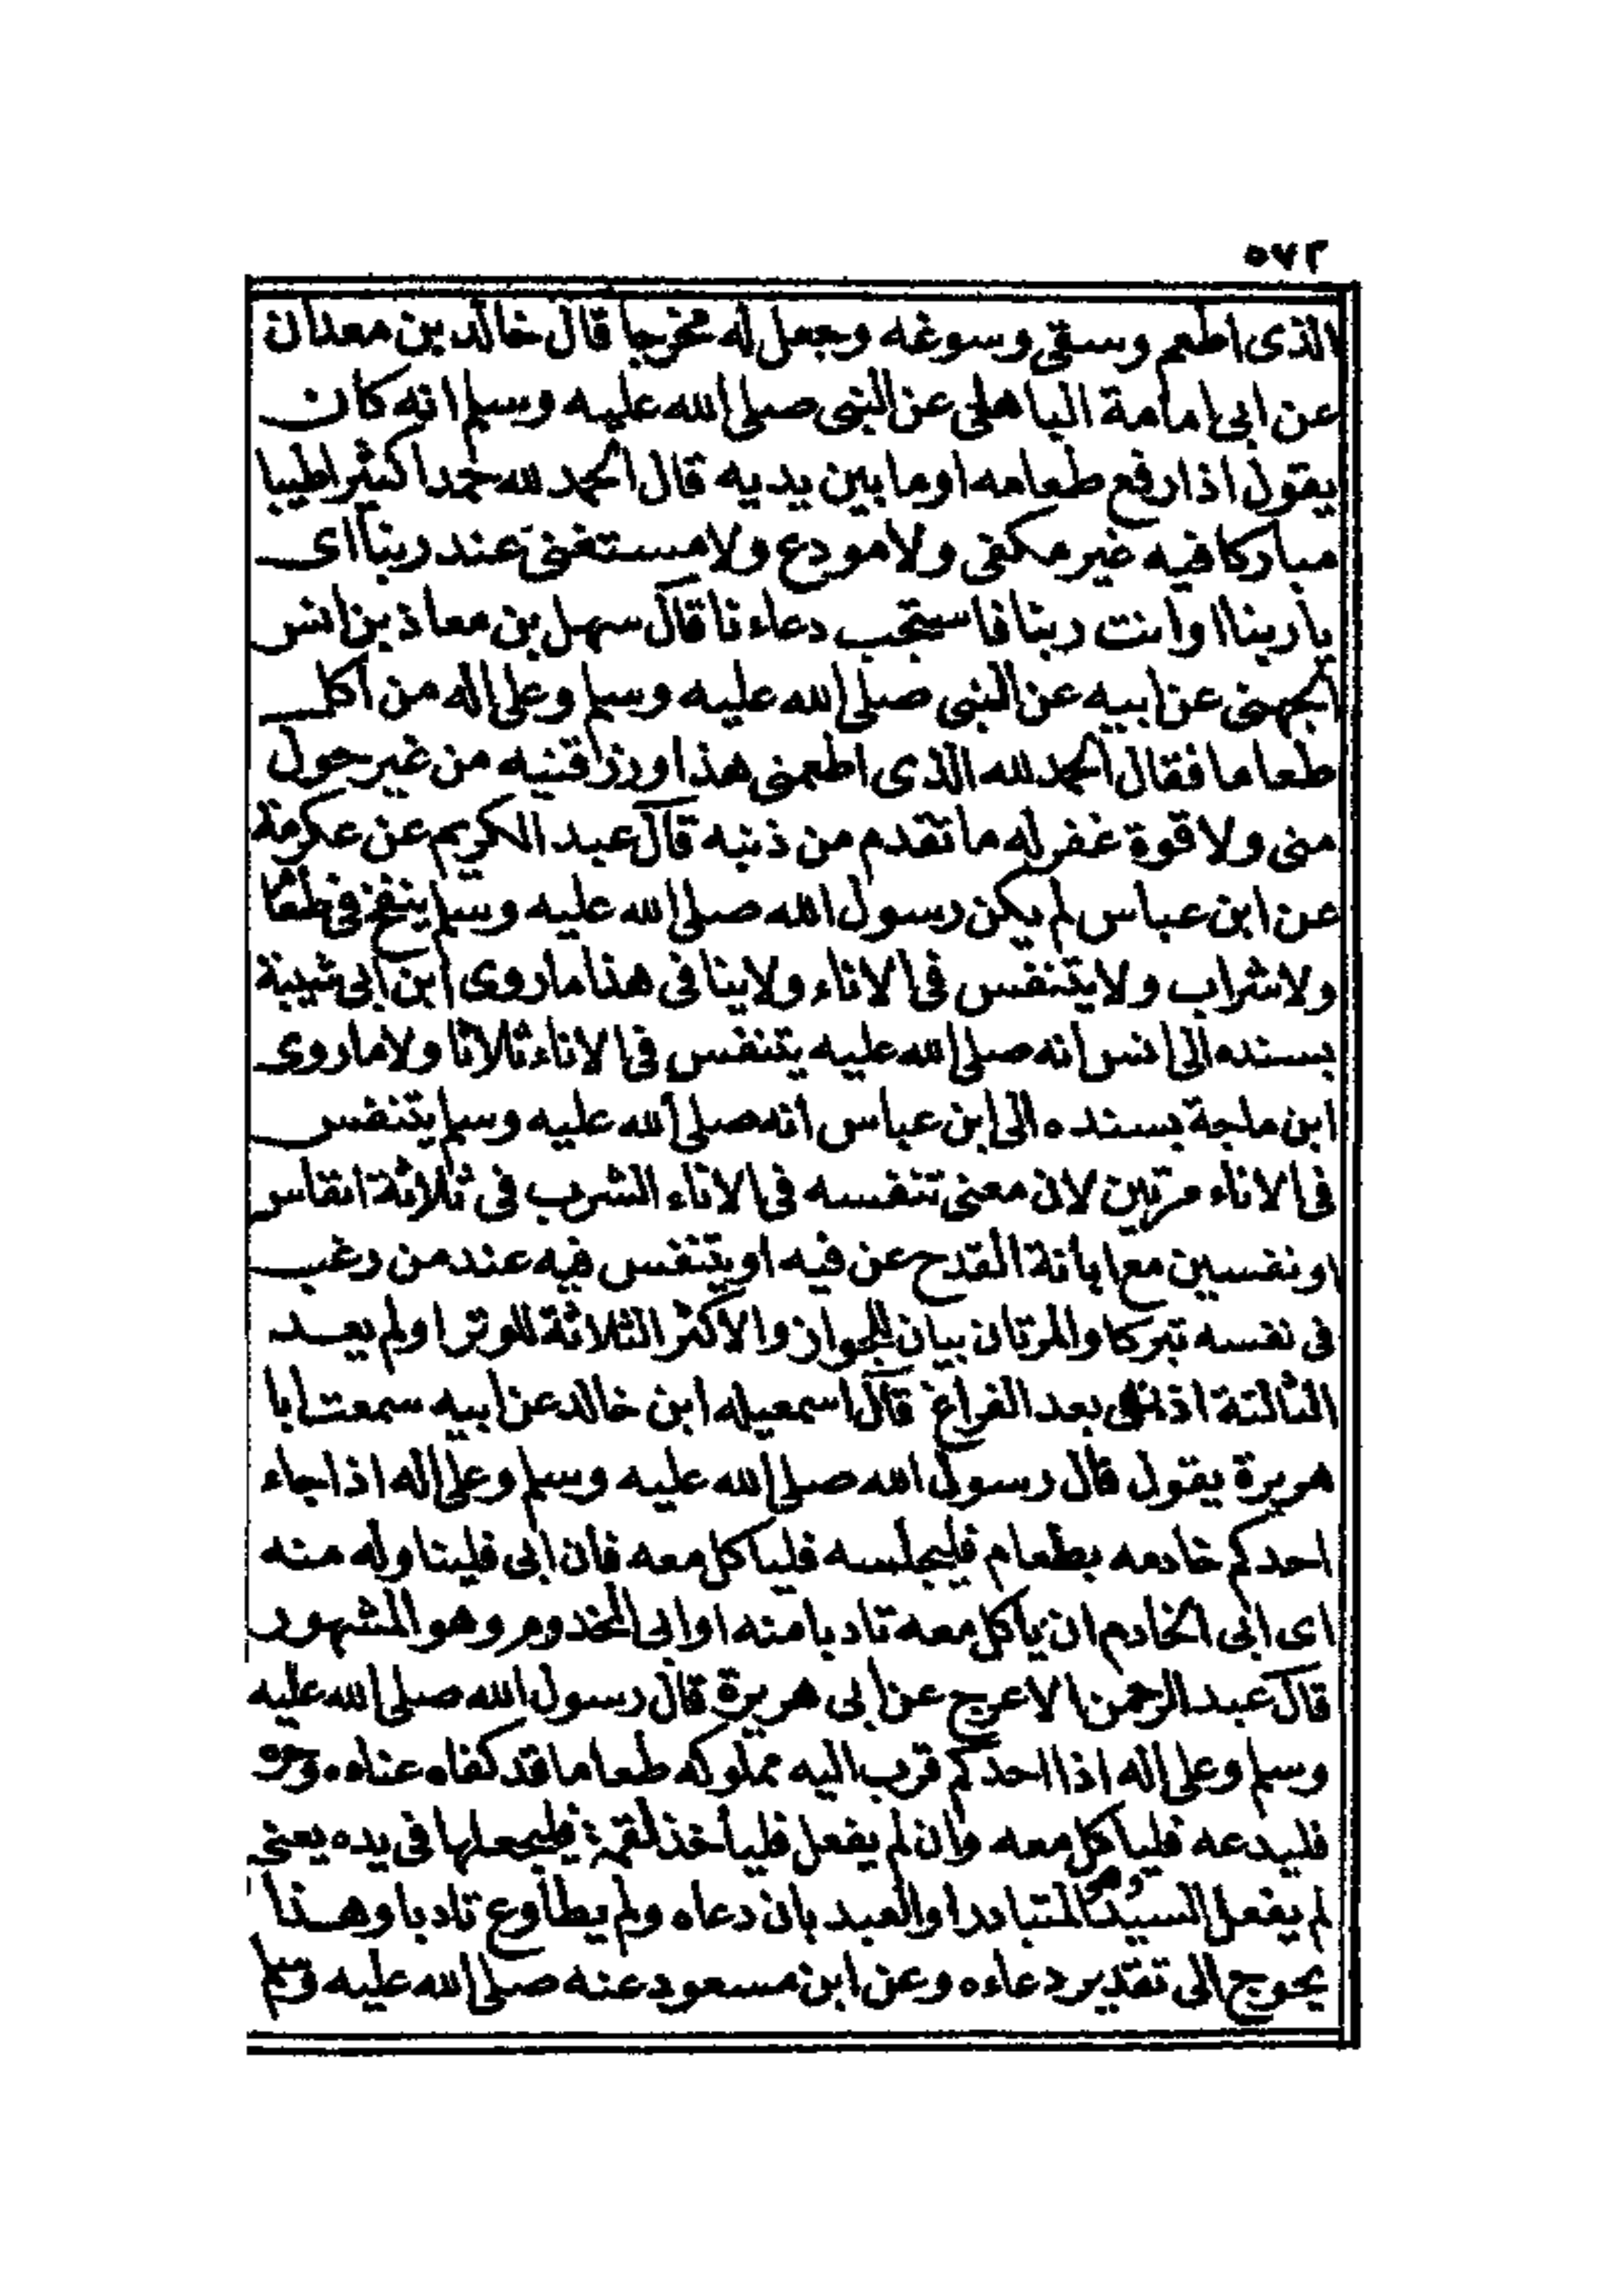 ٥٧٢
الذى اطعم وسقى وسوغه وجعل له مخرجا قال خالد بن معدان
عن ابى امامة الباهلى عن النبى صلى الله عليه وسلم انه كان
يقول اذا رفع طعامه او ما بين يديه قال الحمد لله حمدا كثيرا طيبا
مباركا فيه غير مكفى ولا مودع ولا مستغنى عند ربنا اى
يا ربنا او انت ربنا فاستجب دعاءنا قال سهل بن معاذ بن انس
الجهنى عن ابيه عن النبى صلى الله عليه وسلم وعلى اله من اكل
طعاما فقال الحمد لله الذى اطعمنى هذا ورزاقنيه من غير حول
منى ولا قوة غفر له ما تقدم من ذنبه قال عبد الكريم عن عكرمة
عن ابن عباس لم يكن رسول الله صلى الله عليه وسلم ينفخ فى طعام
ولا شراب ولا يتنفس فى الاناء ولا ينافى هذا ما روى ابن ابى شيبة
بسنده الى انس انه صلى الله عليه يتنفس فى الاناء ثلاثا ولا ما روى
ابن ماجة بسنده الى ابن عباس انه صلى الله عليه وسلم يتنفس
فى الاناء مرتين لان معنى تنفسه فى الاناء الشرب فى ثلاثة انفاس
او نفسين مع ابانة القدح عن فيه او يتنفس فيه عند من رغب
فى نفسه تبركا والمرتان بيان للجواز والاكثر الثلاثة للوتر او لم يعد
الثالثة اذ هى بعد الفراغ قال اسمعيل ابن خالد عن ابيه سمعت ابا
هريرة يقول قال رسول الله صلى الله عليه وسلم وعلى اله اذا جاء
احدكم خادمه بطعام فليجلسه فلياكل معه فان ابى فليناوله منه
اى ابى الخادم ان ياكل معه تادبا منه او ابى المخدوم وهو المشهور
قال عبد الرحمن الاعرج عن ابى هريرة قال رسول الله صلى الله عليه
وسلم وعلى اله اذا احدكم قرب اليه مملوكه طعاما قد كفاه عناه وحره
فليدعه فلياكل معه وان لم يفعل فليأخذ لقمة فليجعلها فى يده يعنى
لم يفعل السيد وهو المتبادر او العبد بان دعاه ولم يطاوع تادبا وهذا
يحوج الى تقدير دعاءه وعن ابن مسعود عنه صلى الله عليه وسلم